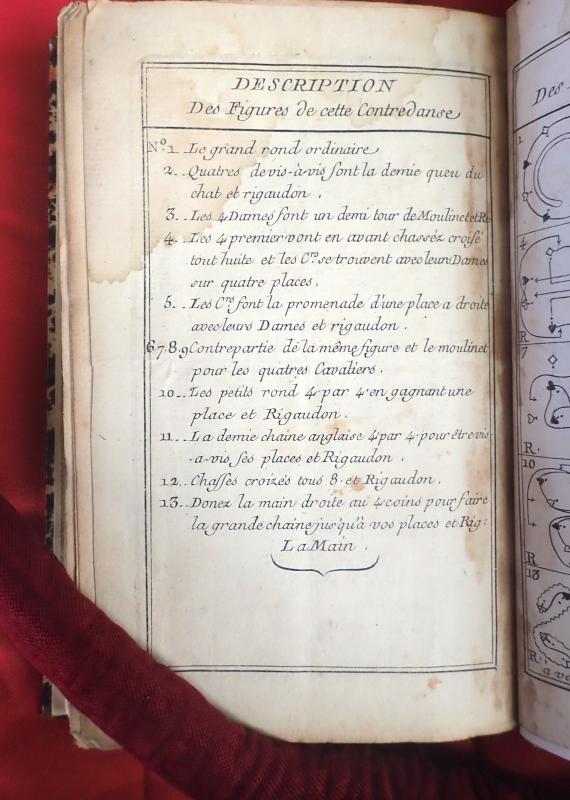 DESCRIPTION
Des Figures de cette Contredanse
N.º1 Le grand rond ordinaire
2.. Quatres de vis-à-vis font la demie queu du
chat et rigaudon.
3.. Les 4 Dames font un demi tour de Moulinet et Ri
4.. Les 4 premier vont en avant chasséz croisé
tout huite et les C.rs se trouvent avec leurs Dames
sur quatre places.
5.. Les C.rs font la promenade d'une place a droite
avec leurs Dames et rigaudon.
6.7.8.9 Contrepartie dé la même figure et le moulinet
pour les quatres Cavaliers.
10.. Les petits rond 4 par 4 en gagnant une
place et Rigaudon.
11.. La demie chaine anglaise 4 par 4 pour être vis-
-a-vis ses places et Rigaudon.
12.. Chasses croizés tous 8 et Rigaudon.
13.. Donez la main droite au 4 coins pour faire
la grande chaine jusqu'à vos places et Rig:
La Main.
Des
1
4
R
7
R.
10
R
13
R.